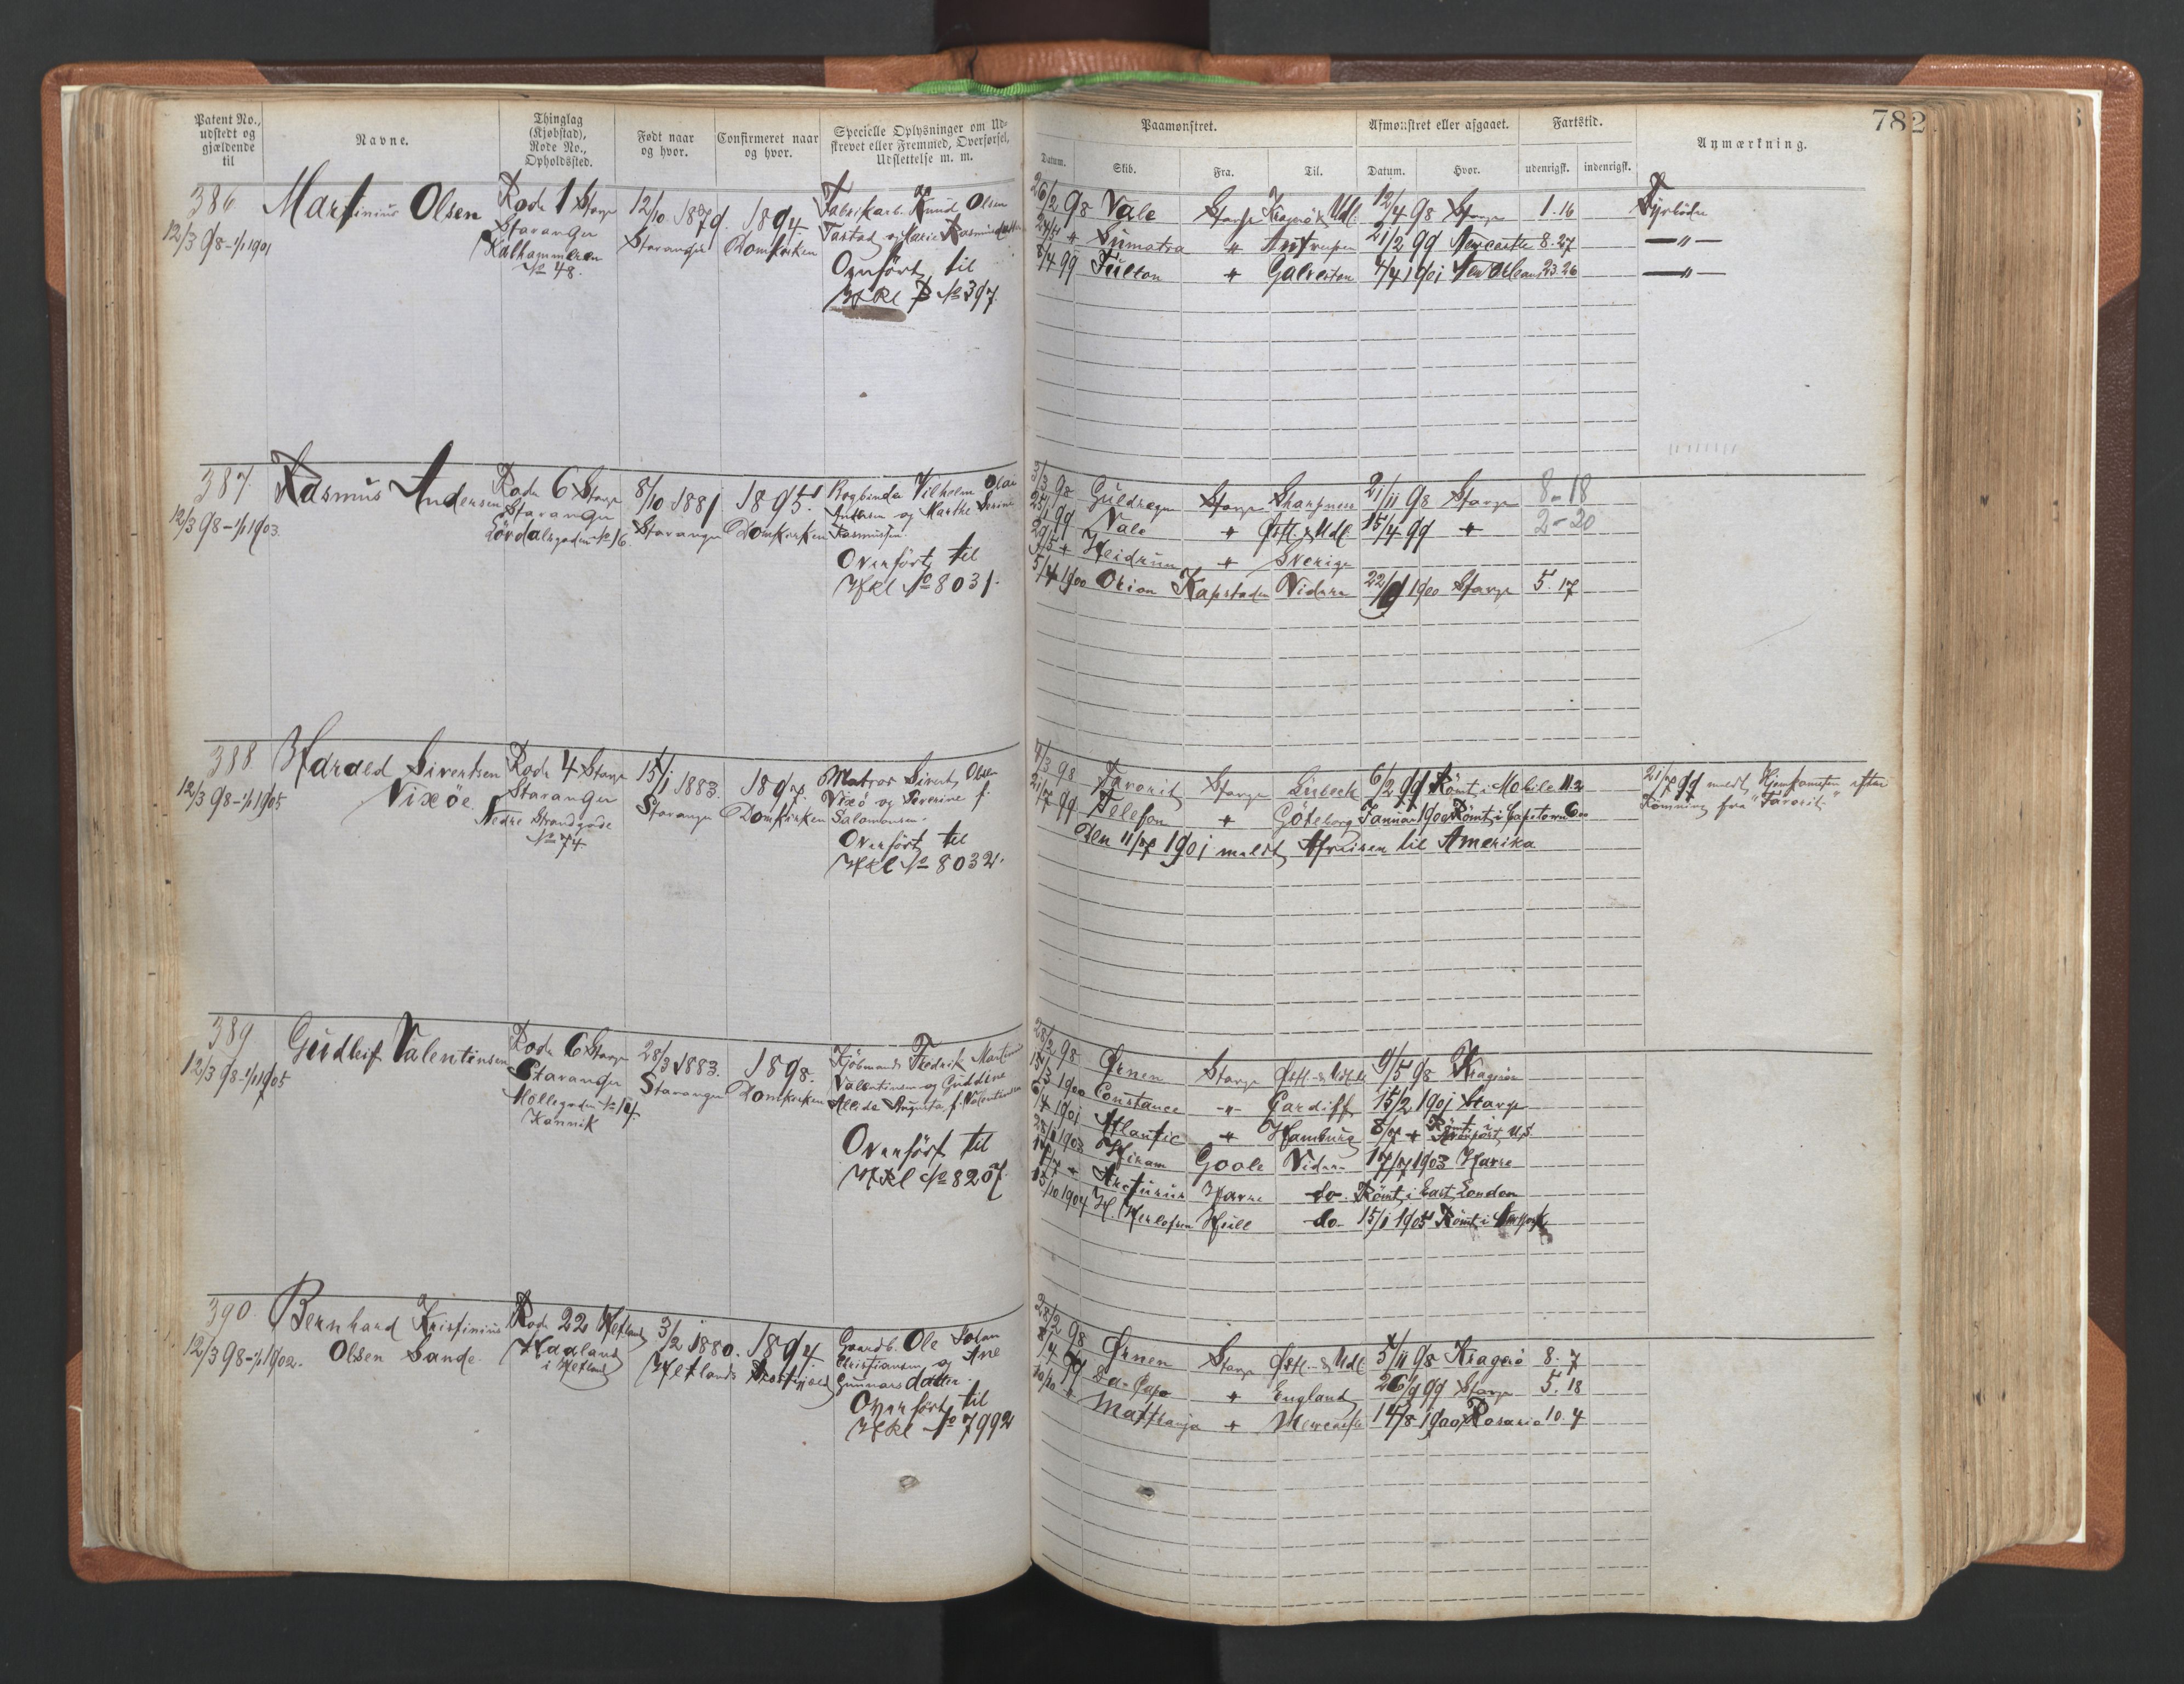 Patent No., udstedt og gjældende til
Navne.
Thinglag (Kjøbstad), Rode No., Opholdssted.
Født naar og hvor.
Confirmeret naar og hvor.
Specielle Oplysninger om Udskrevet eller Fremmed, Overførsel, Udslettelse m. m.
Paamønstret.
Afmønstret eller afgaaet.
Fartstid.
Anmærkning.
782
Datum.
Skib.
Fra.
Til.
Datum.
Hvor.
udenrigsk.
indenrigsk.
386
12/3 98 - 1/1 1901
Martinius Olsen
Rode 1 Stavgr
Stavanger
Kalhammeren
No 48.
12/10 1879.
Stavanger
1894.
Domkirken
Fabrikarb. Knud Olsen
Tastad og Marie
Overført til
Hkl B No 397.
26/2 98 Vale Stavgr Kragerö & Udl. 12/4 98 Stavgr 1.16 Fyrböder
" Sumatra " Antverpen 21/2 99 Newcastle 8.27 — " —
8/4 99 Fulton " Galveston 4/4 1901 New Orleans 23.26 — " —
387
12/3 98 - 1/1 1903.
Rasmus Andersen
Rode 6 Stavgr
Stavanger
Lövdalsgaden No 16.
8/10 1881
Stavanger
1895.
Domkirken
Bogbinder Vilhelm Olai
Andersen og Marthe Serine
Rasmussen.
Overført til
Hkl No 8031.
3/3 98 Guldregn Stavgr Sharpness 21/11 98 Stavgr 8 - 18
25/1 99 Vale " Østl. & Udl 15/4 99 " 2 - 20
29/5 " Heidrun " Sverige
5/4 1900 Orion Kapstaden Videre 22/9 1900 Stavgr 5. 17
388
12/3 98 - 1/1 1905
Harald Sivertsen
Vixöe.
Rode 4 Stavgr
Stavanger
Nedre Strandgade
No 74
15/1 1883.
Stavanger
1897.
Domkirken
Matros Sivert Olsen
Vixö og Severine f.
Salomonsen.
Overført til
Hkl No 8032.
4/3 98 Favorit Stavgr Lisbeck 6/2 99 Römt i Mobile 11.2
21/7 99 meldt Hjemkomsten efter
Römning fra "Favorit."
21/7 99 Telefon " Göteborg Januar 1900 Römt i Capetown 6
Den 11/7 1901 meldt Afreisen til Amerika
389
12/3 98 - 1/1 1905
Gudleif Valentinsen
Rode 6 Stavgr
Stavanger
Møllegaden No 14.
Kannik
28/3 1883.
Stavanger
1898.
Domkirken
Kjöbmand Fredrik Martin
Valentinsen og Guddine
Alida Augusta f. Valentinsen
Overført til
Hkl No 8207.
28/2 98 Ørnen Stavgr Østl. & Udl 9/5 98 Kragerö
15/3 1900 Constance - " - Cardiff 15/2 1901 Stavgr
6/4 1901 Atlantic " Hamburg 8/7 " Römt
28/1 1903 Hiram Goole Videre 17/7 1903 Havre
17/7 " Arcturus Havre do. Römt i East London
15/10 1904 H. Herlofsen Hull do 15/1 1905 Römt i
390.
12/3 98 - 1/1 1902.
Bernhard Kristinius
Olsen Sande.
Rode 22 Hetland
Haaland
i Hetland
3/2 1880.
Hetlands
1894.
Gaardb. Ole Johan
Christiansen og Ane
Gunnars datter.
Overført til
Hkl No 7992
28/2 98 Ørnen Stavgr Østl. & Udl 5/11 98 Kragerö 8. 7
8/4 99 Da-Capo " England 26/9 99 Stavgr 5. 18
10/10 " Matthanja " Newcastle 14/8 1900 Rosario 10. 4